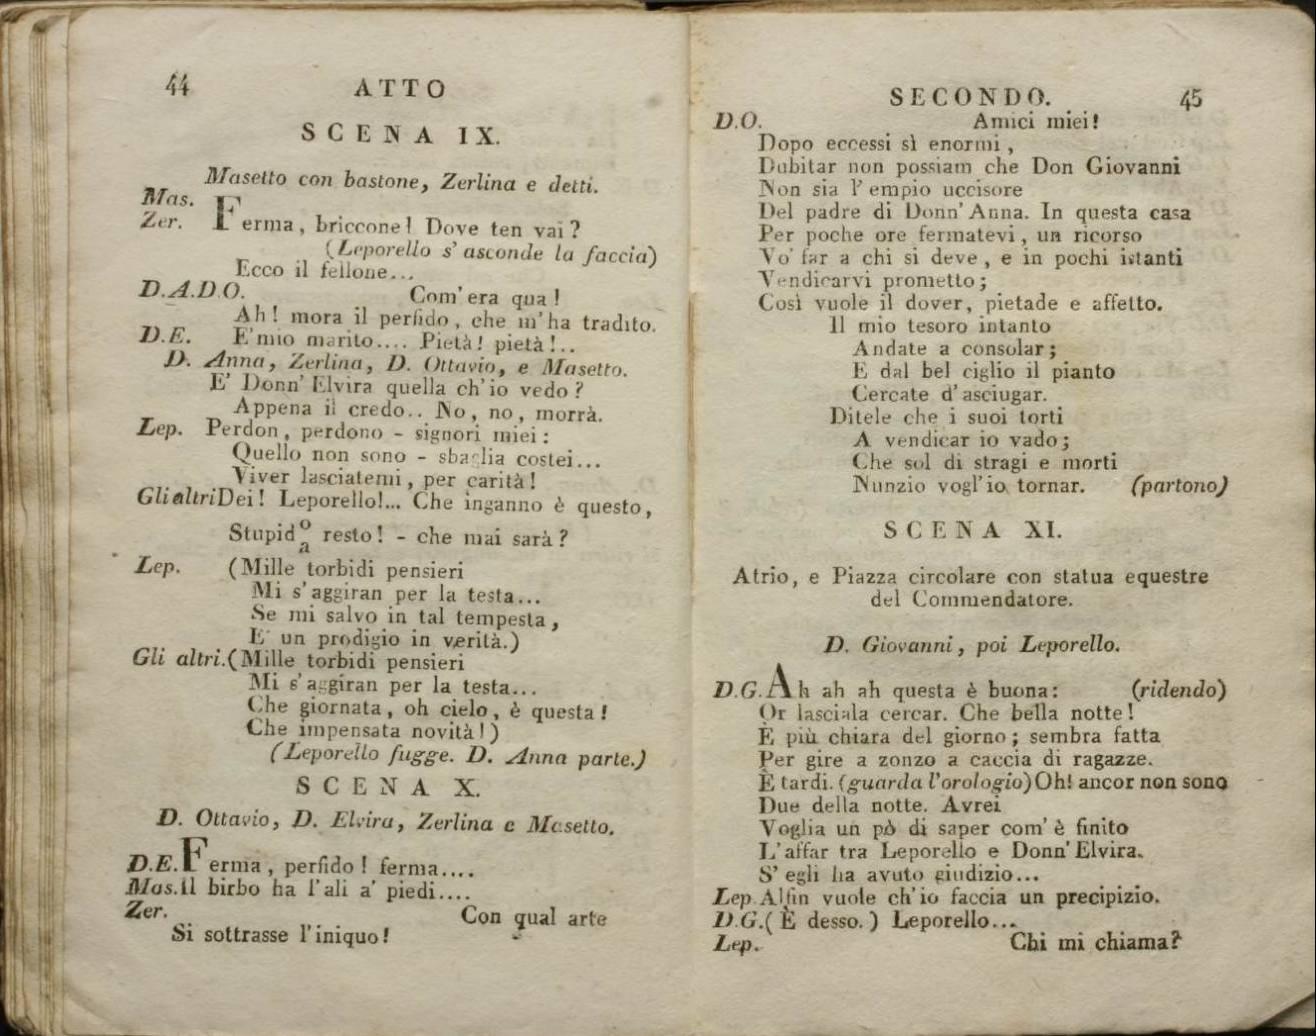 44
ATTO
SCENA IX.
Masetto con bastone, Zerlina e detti.
Mas.
Zer. Ferma, briccone! Dove ten vai?
(Leporello s' asconde la faccia)
Ecco il fellone...
D.A.D.O. Com' era qua!
Ah! mora il perfido, che m' ha tradito.
D.E. E' mio marito.... Pietà! pietà!..
D. Anna, Zerlina, D. Ottavio, e Masetto.
E' Donn' Elvira quella ch' io vedo?
Appena il credo.. No, no, morrà.
Lep. Perdon, perdono - signori miei:
Quello non sono - sbaglia costei...
Viver lasciatemi, per carità!
Gli altri Dei! Leporello!... Che inganno è questo,
Stupid o/a resto! - che mai sarà?
Lep. (Mille torbidi pensieri
Mi s' aggiran per la testa...
Se mi salvo in tal tempesta,
E' un prodigio in verità.)
Gli altri. (Mille torbidi pensieri
Mi s' aggiran per la testa...
Che giornata, oh cielo, è questa!
Che impensata novità!)
(Leporello fugge. D. Anna parte.)
SCENA X.
D. Ottavio, D. Elvira, Zerlina e Masetto.
D.E. Ferma, perfido! ferma....
Mas. Il birbo ha l' ali a' piedi....
Zer. Con qual arte
Si sottrasse l' iniquo!
SECONDO.
45
D.O. Amici miei!
Dopo eccessi sì enormi,
Dubitar non possiam che Don Giovanni
Non sia l' empio uccisore
Del padre di Donn' Anna. In questa casa
Per poche ore fermatevi, un ricorso
Vo' far a chi si deve, e in pochi istanti
Vendicarvi prometto;
Così vuole il dover, pietade e affetto.
Il mio tesoro intanto
Andate a consolar;
E dal bel ciglio il pianto
Cercate d' asciugar.
Ditele che i suoi torti
A vendicar io vado;
Che sol di stragi e morti
Nunzio vogl' io tornar. (partono)
SCENA XI.
Atrio, e Piazza circolare con statua equestre
del Commendatore.
D. Giovanni, poi Leporello.
D.G. Ah ah ah questa è buona: (ridendo)
Or lasciala cercar. Che bella notte!
È più chiara del giorno; sembra fatta
Per gire a zonzo a caccia di ragazze.
È tardi. (guarda l'orologio) Oh! ancor non sono
Due della notte. Avrei
Voglia un pò di saper com' è finito
L' affar tra Leporello e Donn' Elvira.
S' egli ha avuto giudizio...
Lep. Alfin vuole ch' io faccia un precipizio.
D.G. (È desso.) Leporello...
Lep. Chi mi chiama?